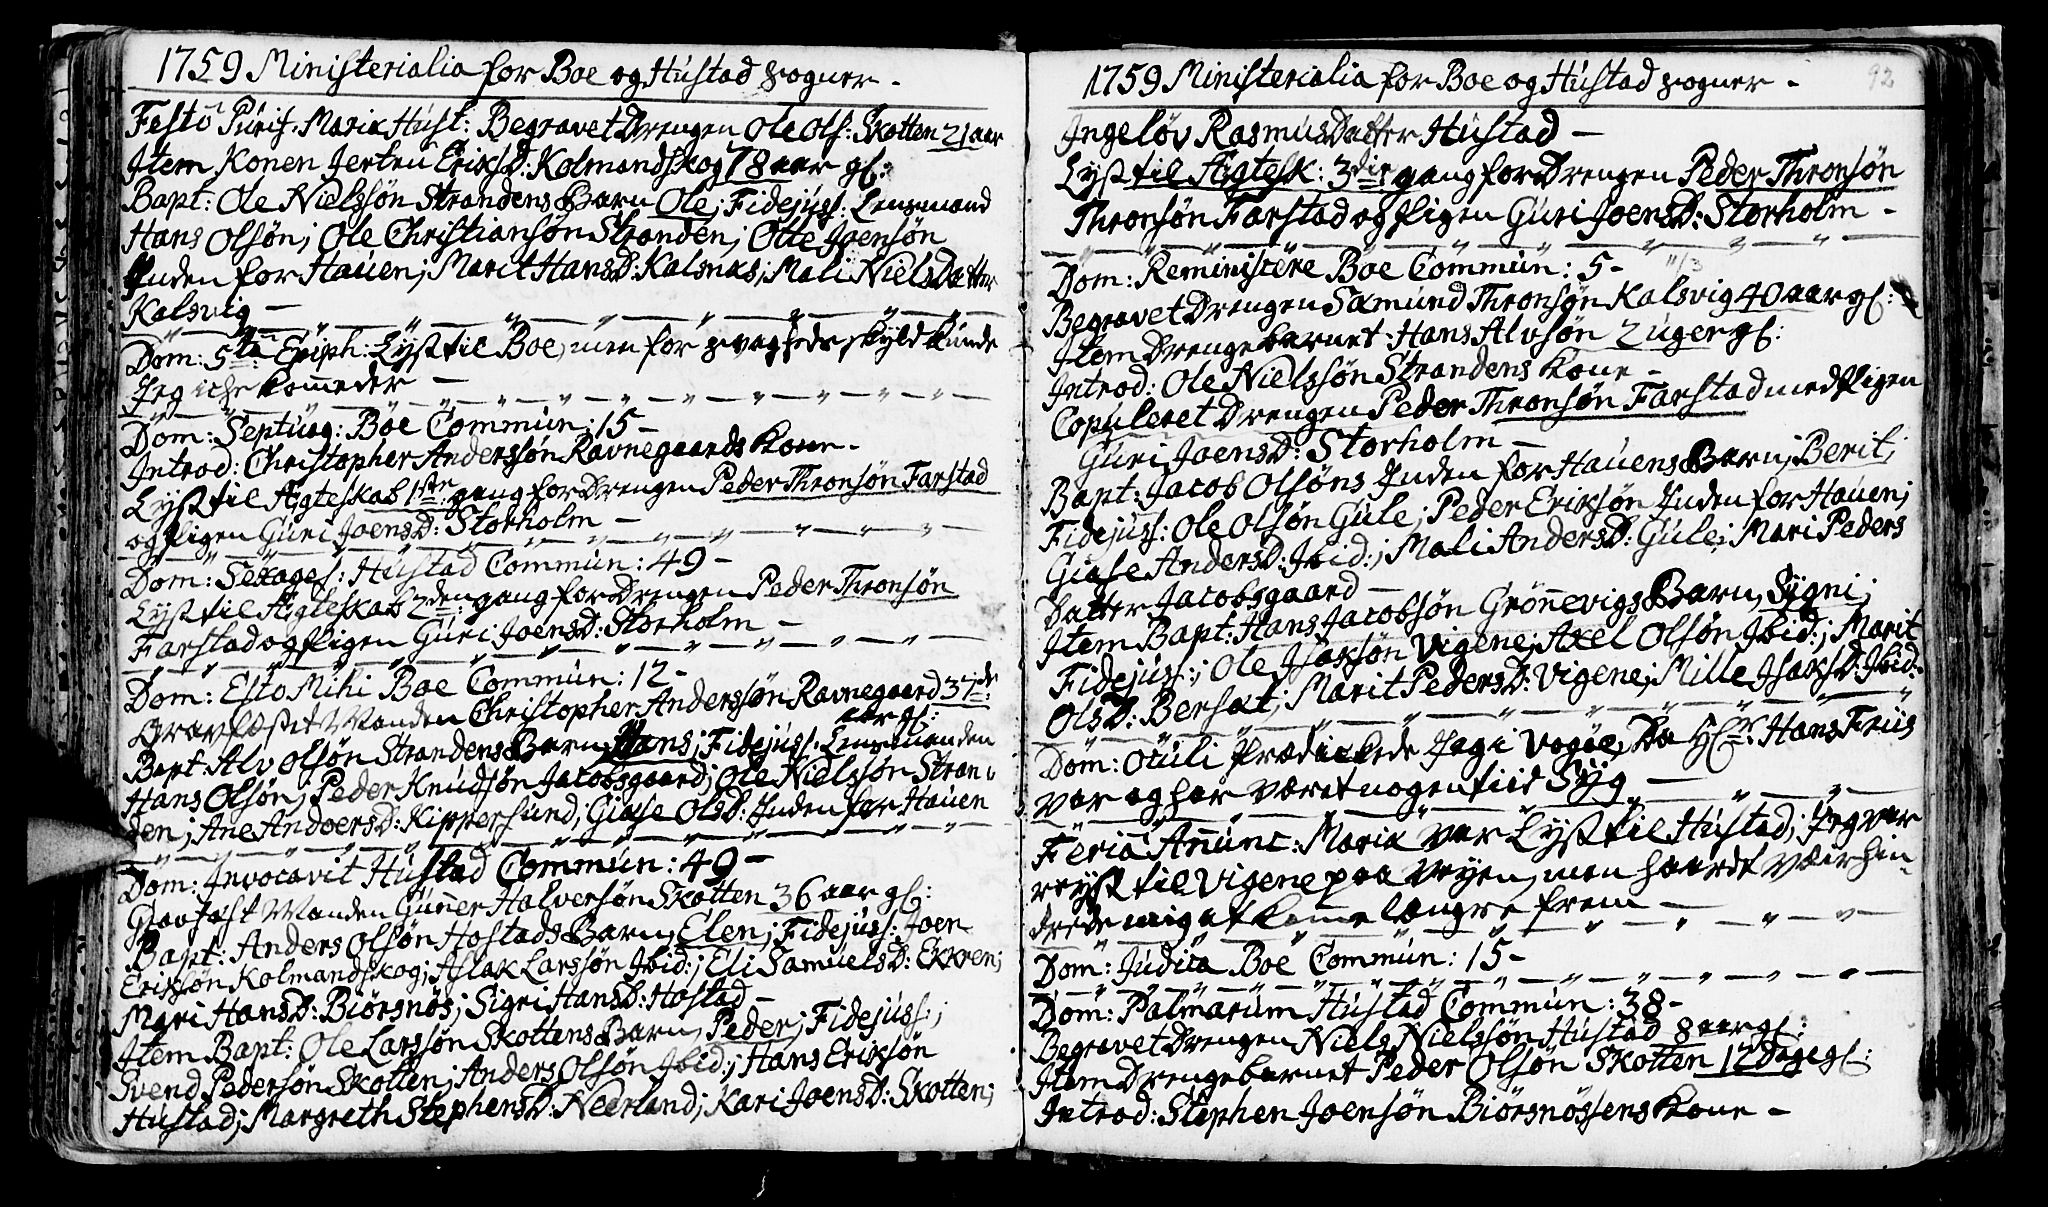 1759 Ministerialia for Boe og Hustad Sogner -
Festo Purif. Mariæ Hust: Begravet Drengen Ole Ols: Skotten 21 aar
Item Konen Jertru EriksD: Kolmandskog 78 aar gl:
Bapt: Ole Nielssøn Strandens Barn Ole; Fidejuss: Lensmand
Hans Olsøn; Ole Christiansøn Stranden; Otte Joensøn
Inden for Hauen; Marit HansD: Kalsnes; Mali NielsDatter
Kalsvig —
Dom: 5ta Epiph: Lyst til Boe, men for svagheds skyld kunde
Jeg iche komme der —
Dom: Septuag: Boe Commun: 15 -
Introd: Christopher Anderssøn Ravnegaards Kone -
Lyst til Ægteskab 1ste gang for Drengen Peder Thronsøn Farstad
og Pigen Guri JoensD: Storholm —
Dom: Sexages: Hustad Commun: 49 -
Lyst til Ægteskab 2den gang for Drengen Peder Thronsøn
Farstad og Pigen Guri JoensD: Storholm -
Dom: Esto Mihi Boe Commun: 12 -
Gravfæstet Manden Christopher Anderssøn Ravnegaard 37 de
aar gl:
Bapt: Alv Olsøn Strandens Barn Hans; Fidejuss: Lensmanden
Hans Olsøn; Peder Knudsøn Jacobsgaard; Ole Nielssøn Stran-
den; Ane AndoersD: Kippersund; Giøse OlsD: Inden for Hauen
Dom: Invocavit Hustad Commun: 49 -
Gravfæst Manden Gunner Halversøn Skotten 36 aar gl:
Bapt: Anders Olsøn Hostads Barn, Elen; Fidejuss: Joen
Erikssøn Kolmandskog; Aslak Larssøn Ibid:; Eli SamuelsD: Ekren;
Mari HansD: Biørsnøs; Sigri HansD: Hostad -
Item Bapt: Ole Larssøn Skottens Barn, Peder; Fidejuss:;
Svend Pedersøn Skotten; Anders Olsøn Ibid:; Hans Eriksøn
Hustad; Margreth StephensD: Neerland; Kari JoensD: Skotten;
1759 Ministerialia for Boe og Hustad Sogner -
92
Ingeløv RasmusDatter Hustad —
Lyst til Ægtesk: 3die gang for Drengen Peder Thronsøn
Thronsøn Farstad og Pigen Guri JoensD: Storholm -
11/3
Dom: Reminiscere Boe Commun: 5 -
Begravet Drengen Sæmund Thronsøn Kalsvig 40 aar gl:
Item Drengebarnet Hans Alvsøn 2 uger gl:
Introd: Ole Nielssøn Strandens Kone -
Copuleret Drengen Peder Thronsøn Farstad med Pigen
Guri JoensD: Storholm —
Bapt: Jacob Olsøns Inden for Hauens Barn; Berit;
Fidejuss: Ole Olsøn Gule; Peder Eriksøn Inden for Hauen;
Giøse AndersD: Ibid:; Mali AndersD: Gule; Mari Peders
Datter Jacobsgaard —
Item Bapt: Hans Jacobsøn Grønnevigs Barn, Signi;
Fidejuss:; Ole Isaksøn Vigene; Axel Olsøn Ibid:; Marit
OlsD: Bersæt; Marit PedersD: Vigene; Mille IsaksD: Ibid:
Dom: Oculi Prædickede Jeg i Vogøe, Da Hr: Hans Friis
var og har været nogen tiid Syg —
Feria Annunc: Mariæ var Lyst til Hustad; Jeg var
reyst til Vigene paa Veyen, men haardt Væir hin-
drede mig at komme længre frem —
Dom: Judica Boe Commun: 15 -
Dom: Palmarum Hustad Commun: 38 -
Begravet Drengen Niels Nielssøn Hustad 8 aar gl:
Item Drengebarnet Peder Olsøn Skotten 12 Dage gl:
Introd: Stephen Joensøn Biørsnøssens Kone -